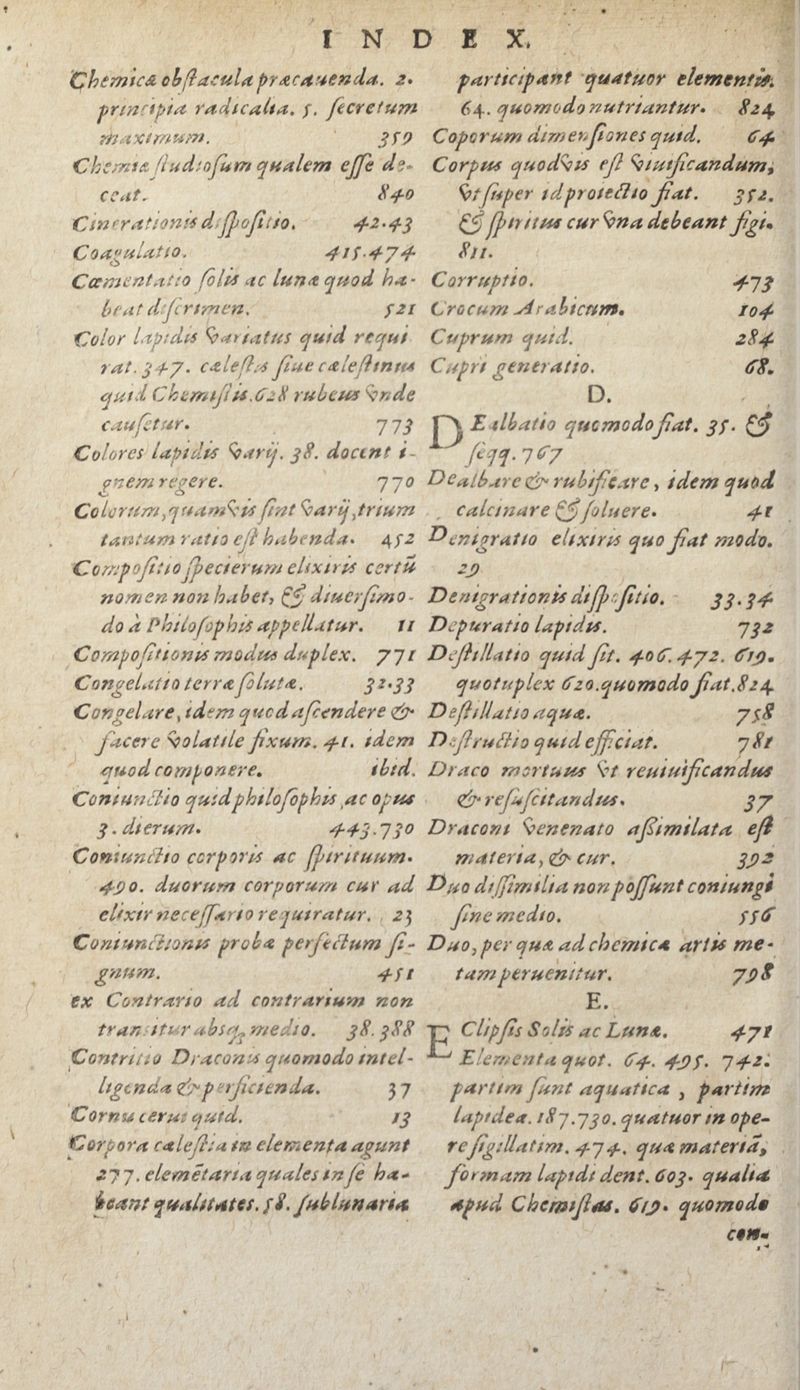 INDEX.
Chemicæ obſtacula præcauenda. 2.
principia radicalia. 5. ſecretum
maximum. 359
Chemiæ ſtudioſum qualem eſſe de-
ceat. 840
Cinerationis diſpoſitio. 42.43
Coagulatio. 415.474
Cœmentatio ſolis ac lunæ quod ha-
beat diſcrimen. 521
Color lapidis variatus quid requi
rat. 347. cæleſtis ſiue cæleſtinus
quid Chemiſtis. 628 rubeus vnde
cauſetur. 773
Colores lapidis varij. 38. docent i-
gnem regere. 770
Colorum, quamvis ſint varij, trium
tantum ratio eſt habenda. 452
Compoſitio ſpecierum elixiris certũ
nomen non habet, & diuerſimo-
do à Philoſophis appellatur. 11
Compoſitionis modus duplex. 771
Congelatio terræ ſolutæ. 32.33
Congelare, idem quod aſcendere &
facere volatile fixum. 41. idem
quod componere. ibid.
Coniunctio quid philoſophis, ac opus
3. dierum. 443.730
Coniunctio corporis ac ſpirituum.
490. duorum corporum cur ad
elixir neceſſario requiratur. 23
Coniunctionis probæ perfectum ſi-
gnum. 451
ex Contrario ad contrarium non
tranſitur absq; medio. 38.388
Contritio Draconis quomodo intel-
ligenda & perficienda. 37
Cornu cerui quid. 13
Corpora cæleſtia in elementa agunt
277. elemẽtaria quales in ſe ha-
beant qualitates. 58. ſublunaria
participant quatuor elementis.
64. quomodo nutriantur. 824
Coporum dimenſiones quid. 64
Corpus quodvis eſt viuificandum,
vt ſuper id proiectio fiat. 352.
& ſpiritus cur vna debeant figi.
811.
Corruptio. 473
Crocum Arabicum. 104
Cuprum quid. 284
Cupri generatio. 68.
D.
DEalbatio quomodo fiat. 35. &
ſeqq. 767
Dealbare & rubificare, idem quod
calcinare & ſoluere. 41
Denigratio elixiris quo fiat modo.
29
Denigrationis diſpoſitio. 33.34
Depuratio lapidis. 732
Deſtillatio quid ſit. 406.472. 619.
quotuplex 620. quomodo fiat. 824
Deſtillatio aquæ. 758
Deſtructio quid efficiat. 781
Draco mortuus vt reuiuificandus
& reſuſcitandus. 37
Draconi venenato aſſimilata eſt
materia, & cur. 392
Duo diſſimilia non poſſunt coniungi
ſine medio. 556
Duo, per quæ ad chemicæ artis me-
tam peruenitur. 798
E.
EClipſis Solis ac Lunæ. 471
Elementa quot. 64. 495. 742.
partim ſunt aquatica, partim
lapidea. 187.730. quatuor in ope-
re ſigillatim. 474. quæ materiã,
formam lapidi dent. 603. qualia
apud Chemiſtas. 619. quomodo
con-